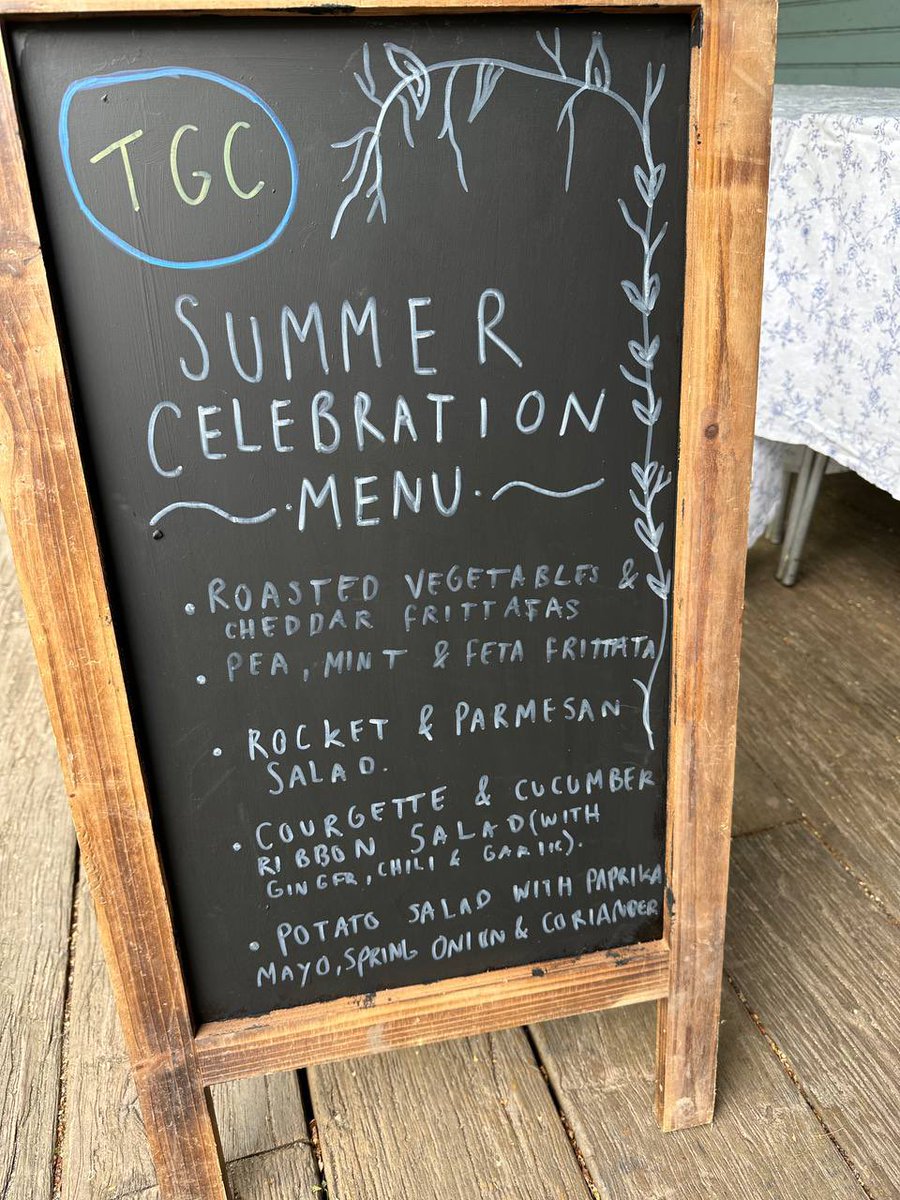 TGC
SUMMER
CELEBRATION
MENU
• ROASTED VEGETABLES &
CHEDDAR FRITTATAS
• PEA, MINT & FETA FRITTATA
• ROCKET & PARMESAN
SALAD.
• COURGETTE & CUCUMBER
RIBBON SALAD (WITH
GINGER, CHILI & GARLIC).
• POTATO SALAD WITH PAPRIKA
MAYO, SPRING ONION & CORIANDER